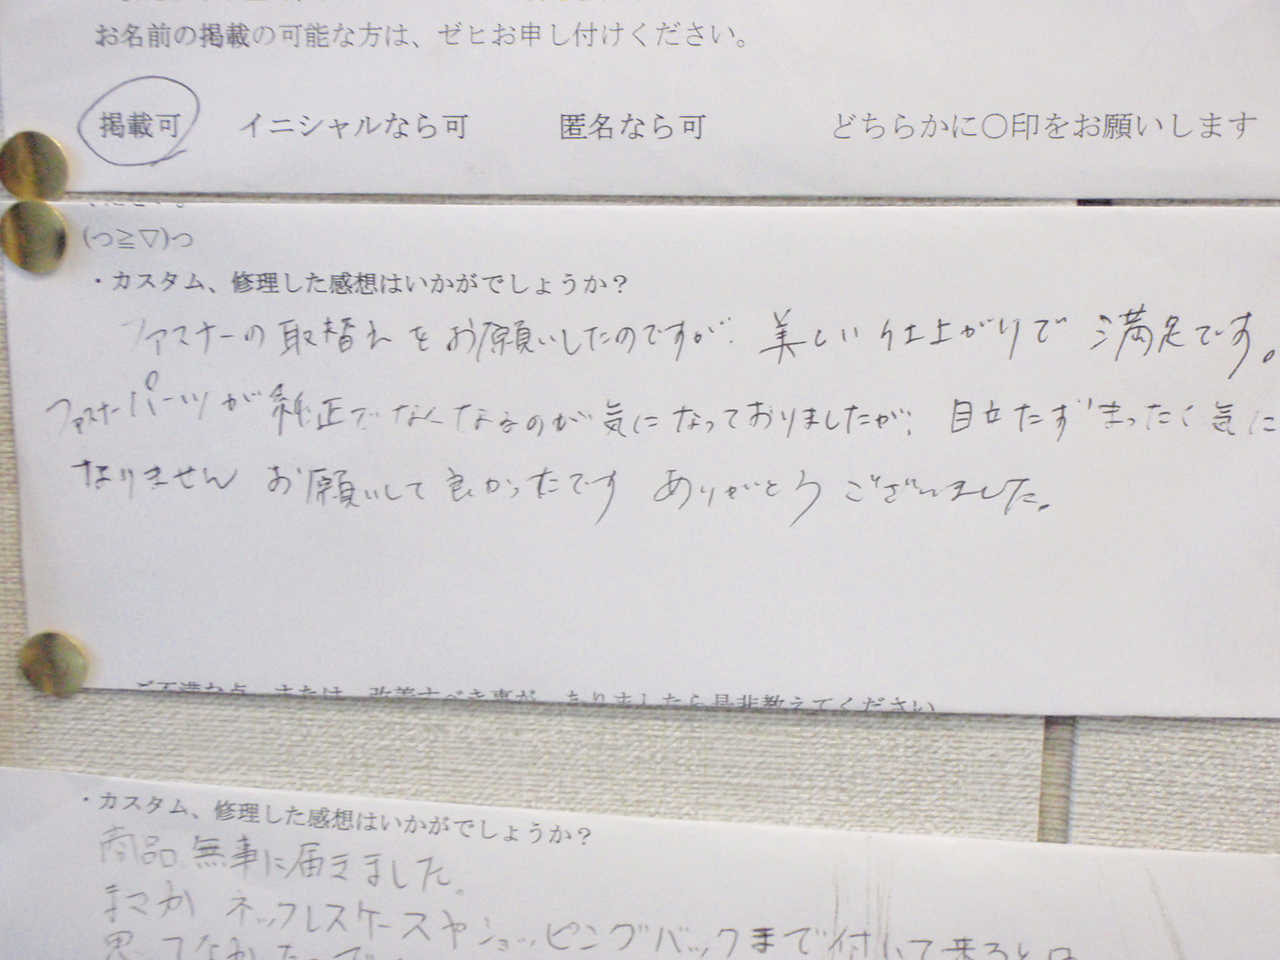 お名前の掲載の可能な方は、ゼヒお申し付けください。
掲載可 イニシャルなら可 匿名なら可 どちらかに〇印をお願いします
(つ≧▽)つ
・カスタム、修理した感想はいかがでしょうか？
ファスナーの取替えをお願いしたのですが、美しい仕上がりで満足です。
ファスナーパーツが純正でなくなるのが気になっておりましたが、目立たずまったく気に
なりません お願いして良かったです ありがとうございました。
ご不満な点、または、改善すべき事が、ありましたら是非教えてください
・カスタム、修理した感想はいかがでしょうか？
商品無事に届きました。
まさか ネックレスケースやショッピングバックまで付いて来るとは
思ってなかったので